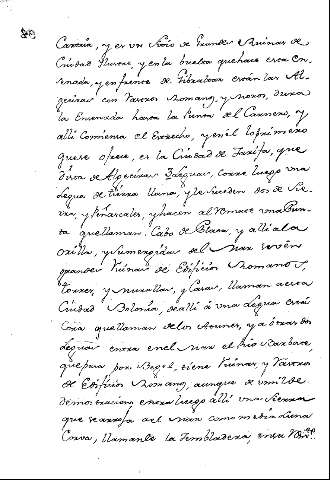 Carteia, y es un Sitio de Grandes Ruinas de
Ciudad y en la buelta que hace esta En-
senada, y en frente de Gibraltar están las Al-
geciras con Vasos Romanos, y Moros, dura
la Ensenada hasta la Punta del Carnero, y
allí comienza el Estrecho, y en él lo primero
que se ofrece, es la Ciudad de Tarifa, que
dista de Algeciras leguas, corre luego una
legua de tierra llana, y le suceden dos de Sie-
rra, y Peñascales, y hacen al Remate una Pun-
ta que llaman Cabo de Plata, y allí a la
orilla, y sumergidas del Mar se vén
grandes Ruinas de Edificios Romanos,
Torres, y Murallas, y Casas, llaman a esta
Ciudad Bolonia, de allí á una legua está
que llaman de los Atunes, y a otras dos
leguas entra en el Mar el Rio Barbate,
que pasa por Begel, tiene Ruinas, y Vasos
de Edificios Romanos, aunque de umilde
demostracion, entra luego allí una Sierra
que se arroja al Mar como media Luna
Corva, llamanle la Tembladera, en su